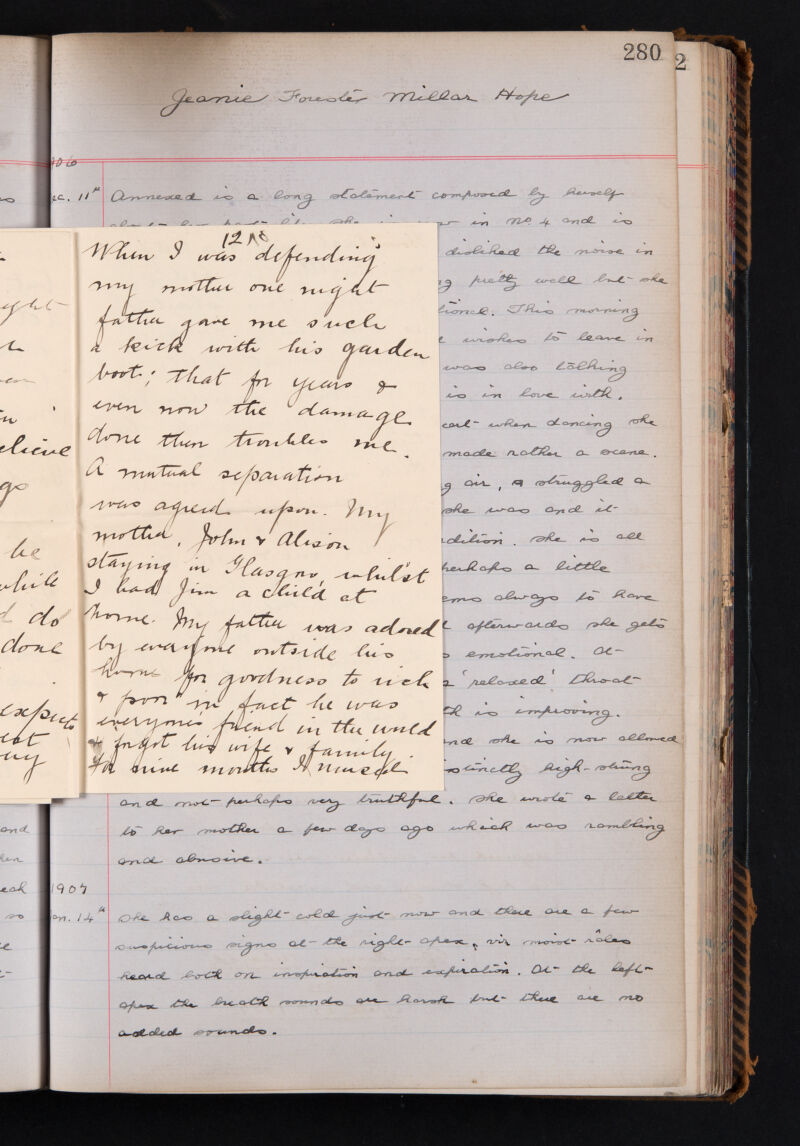 280
2
Jeanie Forester Millar Hope
1906
Dec. 11th Annexed is a long statement composed by herself
in No. 4 and is
disliked the noise in
pretty well but she
This morning
wishes to leave in
was also talking
is in love with.
when dancing she
made rather a scene.
air, & struggled a
she was and it
She is all
perhaps a little
always to have
afterwards she gets
emotional. At
'relaxed' throat
is improving.
and she is now allowed
high-strung
and not perhaps very truthful. She wrote a letter
to her mother a few days ago which was rambling
and abusive.
1907
Jan. 14th She has a slight cold just now and there are a few
suspicious signs at the right apex, viz moist râles
heard both on inspiration and expiration. At the left
apex the breath sounds are harsh but there are no
added sounds.
12
When I was defending
my mother one night
father gave me such
a kick with his garden
boot; that for years &
even now the damage
done then troubles me.
A mutual separation
was agreed upon. My
mother, John & Alison
staying in Glasgow, whilst
I had Jim a child at
home. My father was adored
by everyone outside his
home for goodness to rich
& poor in fact he was
everyone's friend in the world
& forgot his wife & family
For nine months I nursed
he
while
do
done
expects
and
so